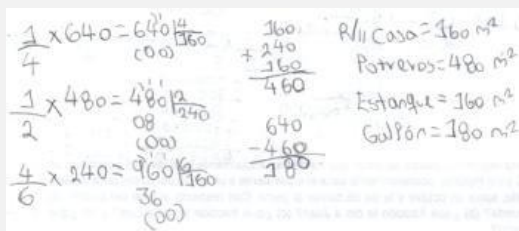 1/4 x 640 = 640 | 4
160
(00)
1/2 x 480 = 480 | 2
240
08
(00)
4/6 x 240 = 960 | 6
160
36
(00)
160
+ 240
160
460
640
- 460
180
R/ll Casa = 160 m²
Potreros = 480 m²
Estanque = 160 m²
Galpón = 180 m²